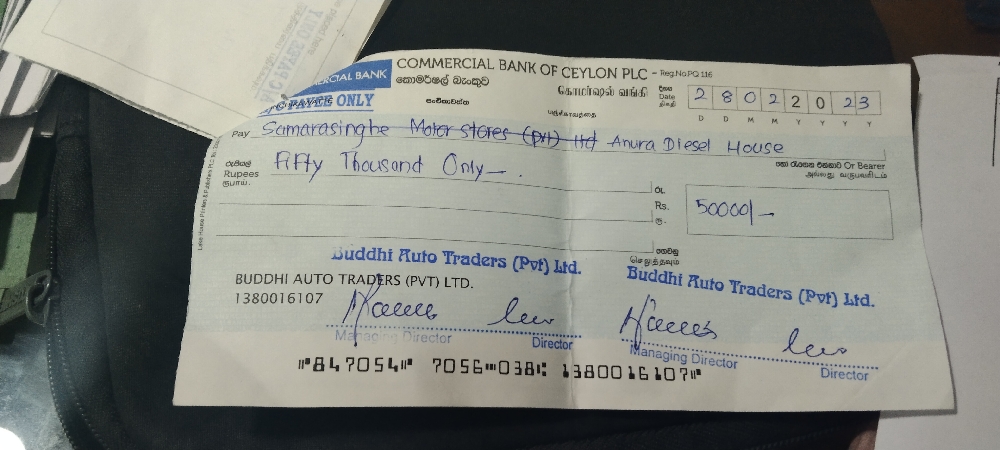 COMMERCIAL BANK OF CEYLON PLC - Reg.No PQ 116
CIAL BANK
කොමර්ෂල් බැංකුව
கொமர்ஷல் வங்கி
ONLY
දිනය
Date
திகதி
2 8 0 2 2 0 2 3
D D M M Y Y Y Y
Pay Samarasinghe Motor Stores (pvt) ltd Anura Diesel House
Or Bearer
අல்லது
රුපියල්
Rupees
ரூபாய்
Fifty Thousand Only
රු.
Rs.
ரூ.
50000/-
Buddhi Auto Traders (Pvt) Ltd.
Buddhi Auto Traders (Pvt) Ltd.
BUDDHI AUTO TRADERS (PVT) LTD.
1380016107
Managing Director
Director
Managing Director
Director
847054 7056 038 1380016107